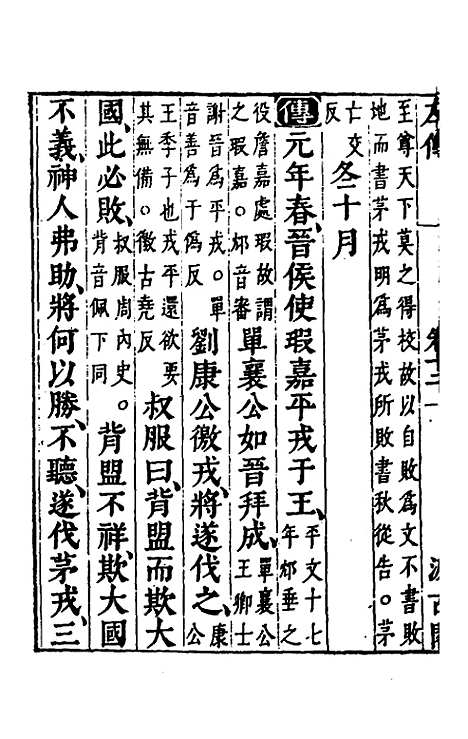 左傳
至尊天下莫之得校故以自敗為文不書敗
地而書茅戎明為茅戎所敗書秋從告。茅
亡交反冬十月
傳元年春、晉侯使瑕嘉平戎于王、平文十七年邥垂之
役詹嘉處瑕故謂之瑕嘉。邥音審單襄公如晉拜成、單襄公王卿士
謝晉為平戎。單音善為于偽反劉康公徼戎、將遂伐之、康公
王季子也戎平還欲要其無備。徼古堯反叔服曰、背盟而欺大
國、此必敗、叔服周內史。背音佩下同背盟不祥、欺大國
不義、神人弗助、將何以勝、不聽、遂伐茅戎、三